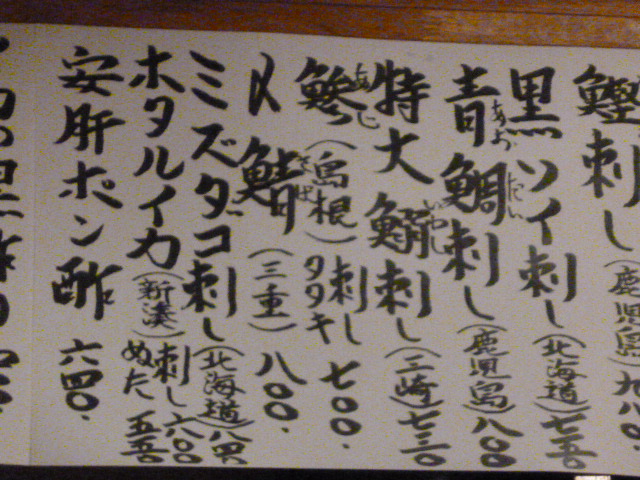 鰹刺し(鹿児島)九八〇
黒ソイ刺し(北海道)七五〇
青鯛刺し(鹿児島)八〇〇
あお だい
特大鰯刺し(三崎)七三〇
いわし
鯵(島根)刺し タタキ 七〇〇.
あじ
〆鯖(三重)八〇〇.
さば
ミズダコ刺し(北海道)
ホタルイカ(新湊)刺し 六〇〇 ぬた 五五〇
安肝ポン酢 六四〇.